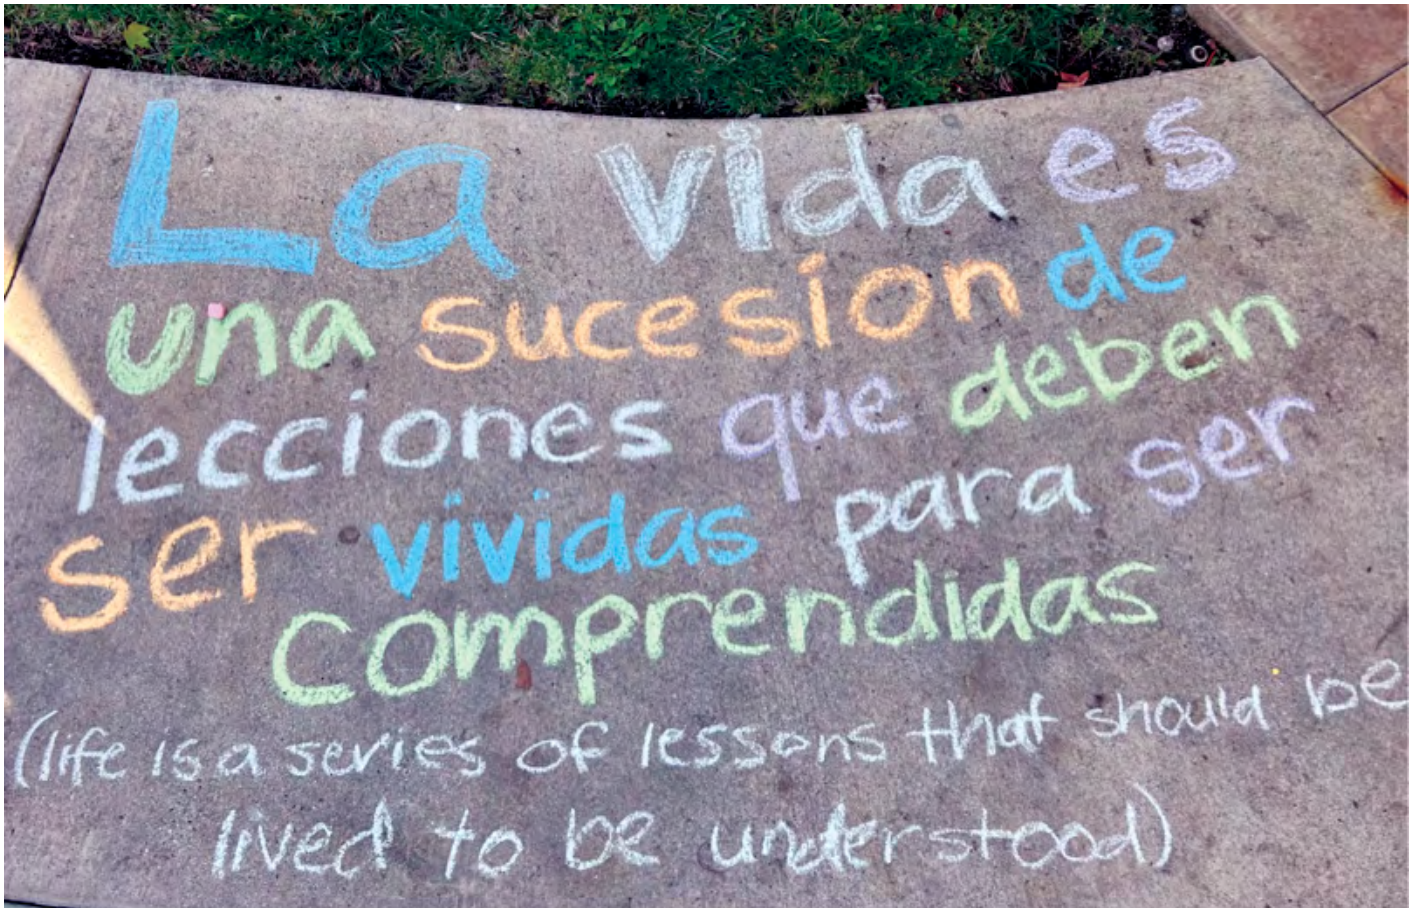 La vida es
una sucesion de
lecciones que deben
ser vividas para ser
comprendidas
(life is a series of lessons that should be
lived to be understood)